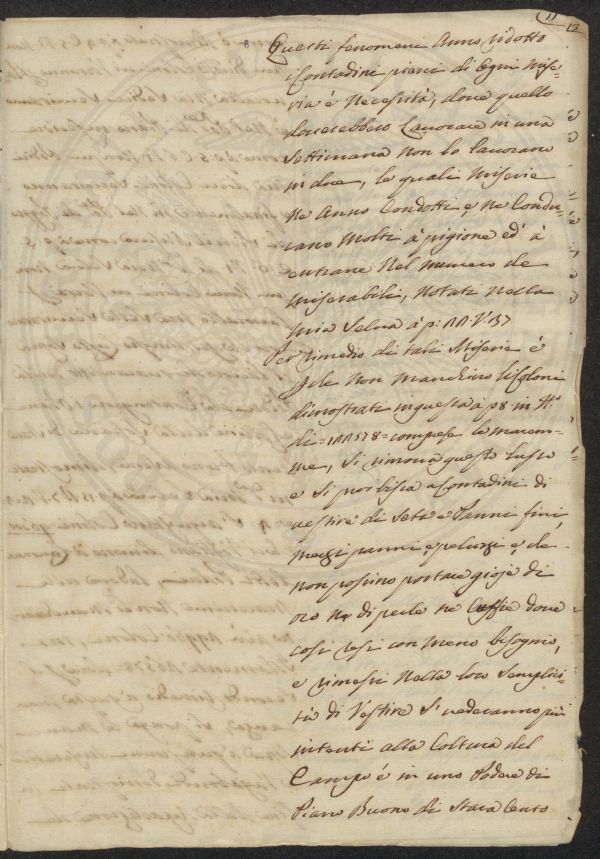 11
13
Questi fenomeni Anno ridotto
i Contadini pieni di Ogni Mise=
ria è Necessità, dove quello
doverebbero Lavorare in una
Settimana non lo lavorano
in due, le quali Miserie
ne Anno Condotti e, ne Condu=
cano Molti à pigione ed' à
entrare Nel numero de
Miserabili, Notati Nella
mia Selva à p: 111: V: 37
Per rimedio di tali Miserie è
che Non manchino li Coloni
dimostrati in questa à p 8 in N.º
di =111578= comprese le marem=
me, Si rimova questo Lusso
e Si proibisca a Contadini di
vestire di Seta e Panni fini,
mezzi panni e peluzzi e, che
non possino portare gioje di
oro ne di perle ne Cuffie dove
così resi con meno bisogno,
e rimessi Nella loro Semplici=
tà di Vestire Si vederanno più
intenti alla Coltura del
Campo è in uno Podere di
Piano Buono di Staia Cento